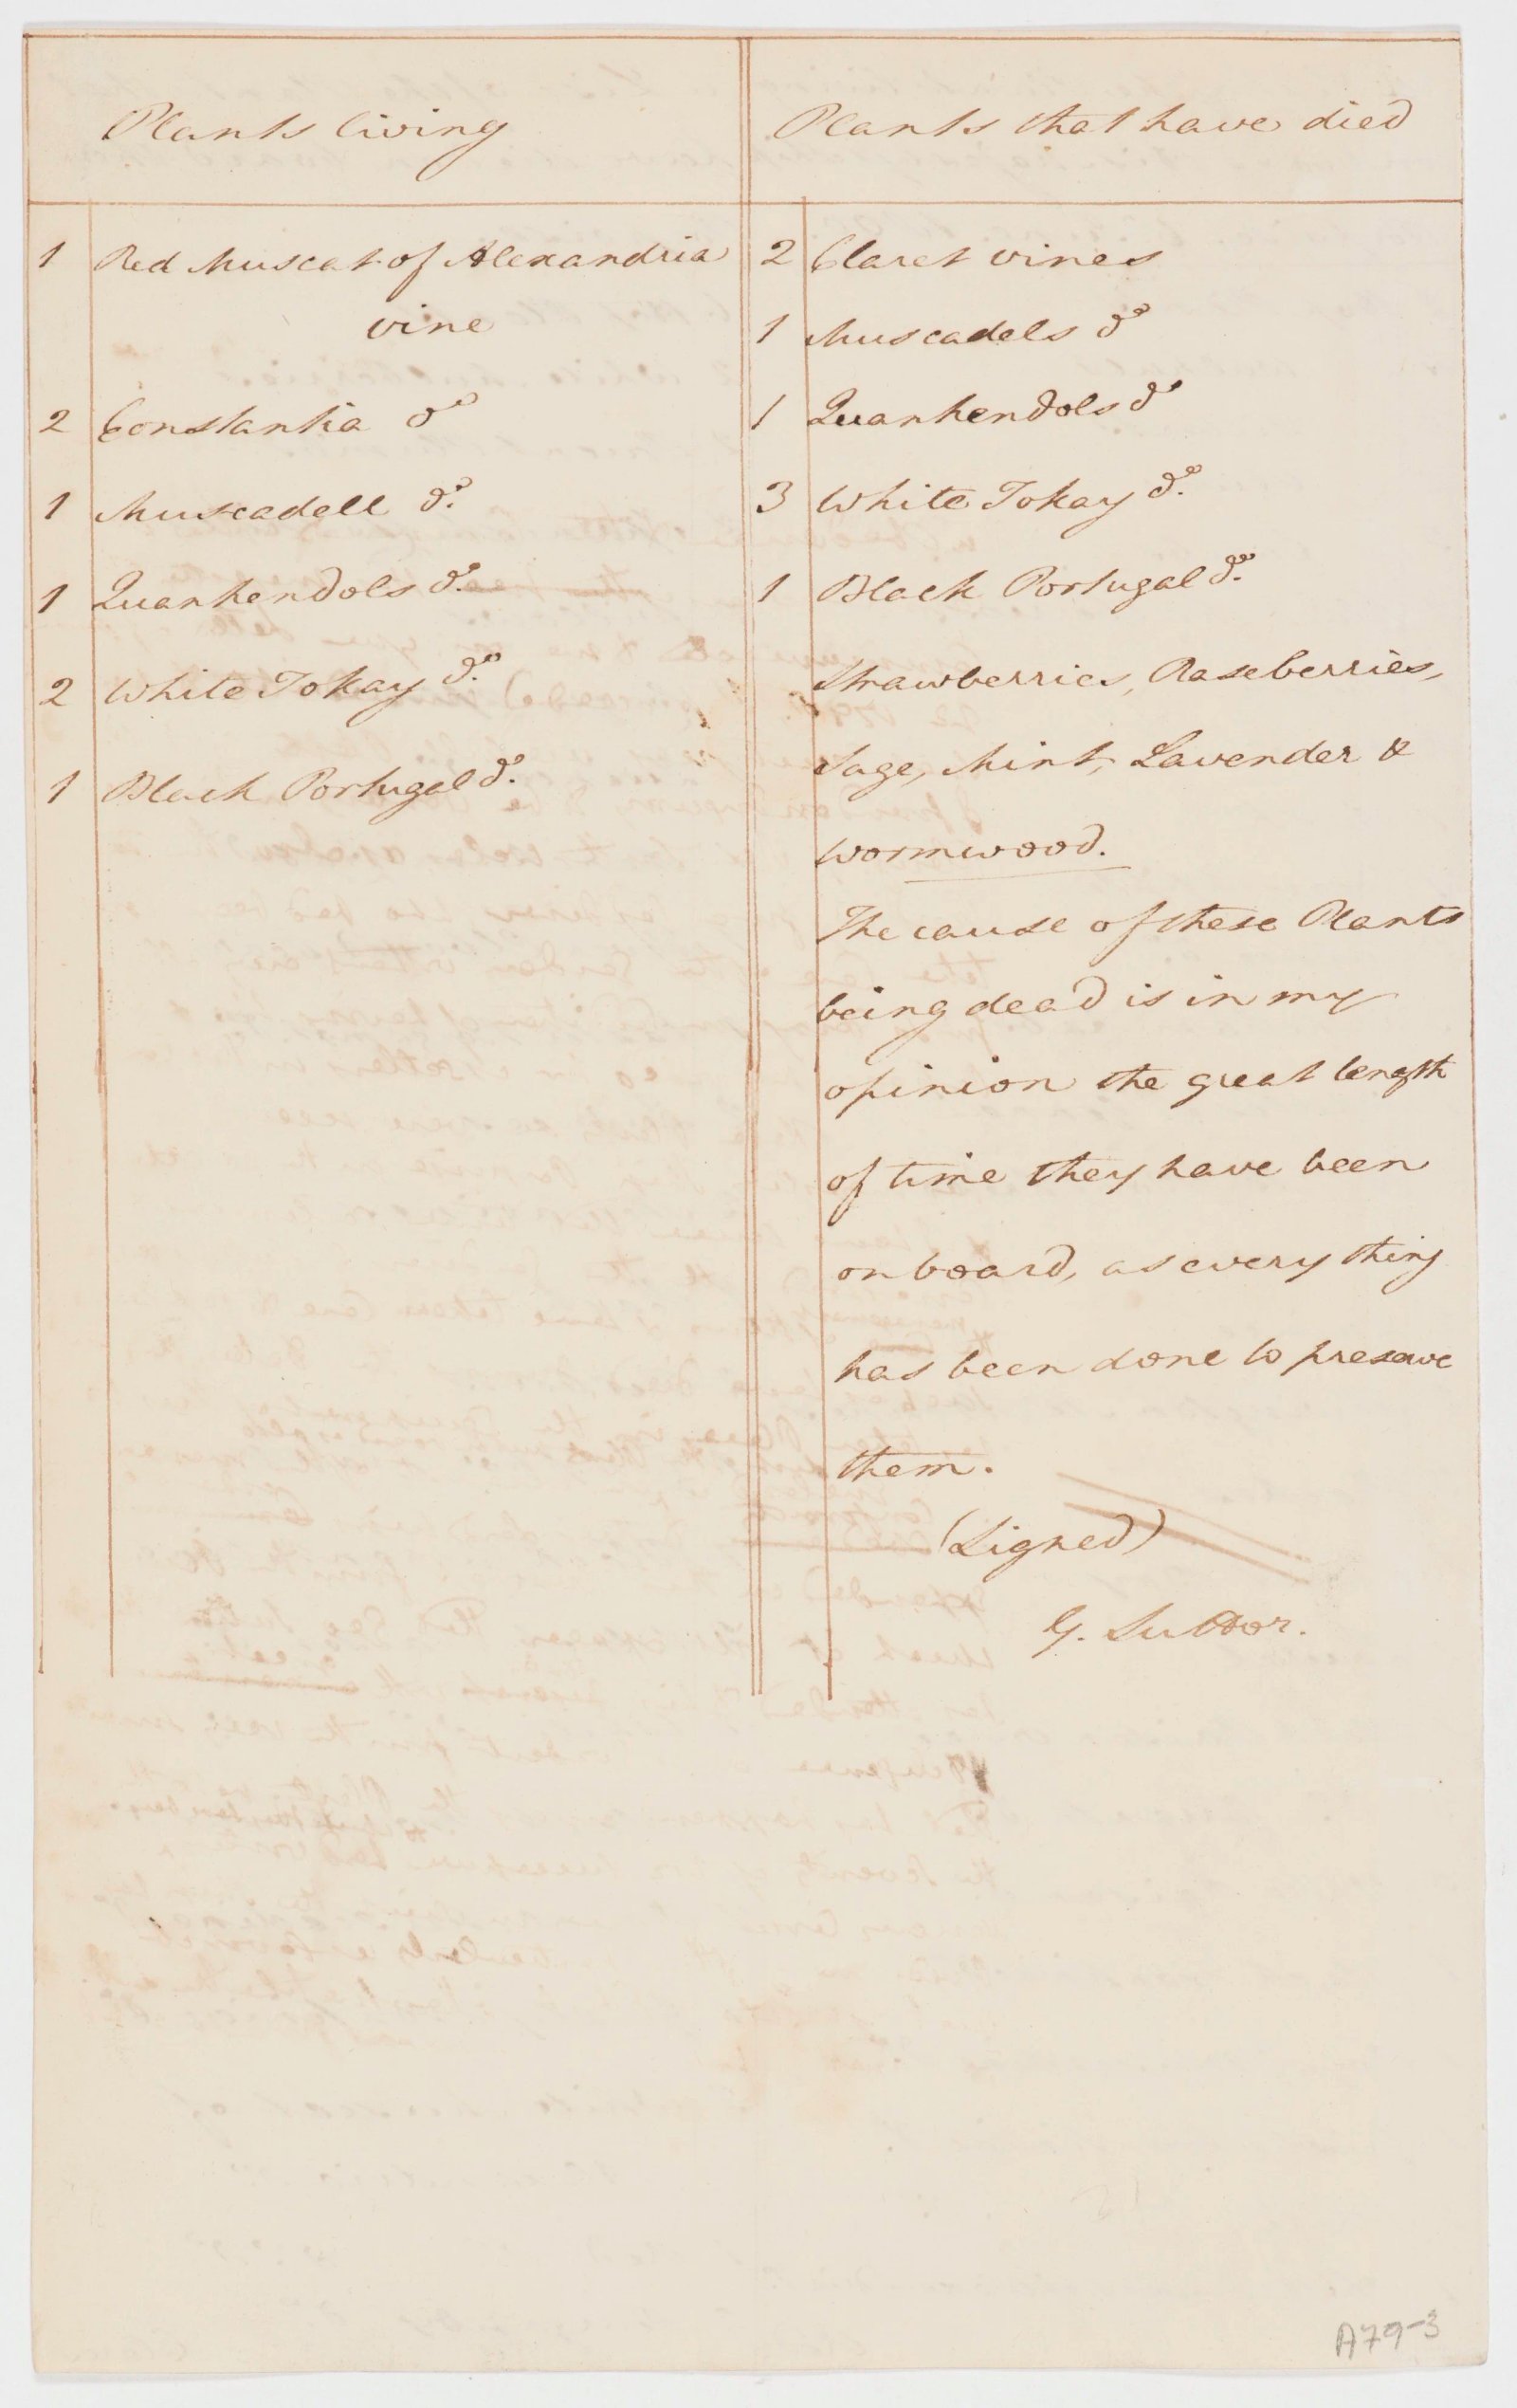 Plants living
1 Red Muscat of Alexandria
vine
2 Constantia do
1 Muscadell do.
1 Quarhendols do.
2 White Tokay do.
1 Black Portugal do.
Plants that have died
2 Claret vines
1 Muscadels do
1 Quarhendols do
3 White Tokay do.
1 Black Portugal do.
Strawberries, Raseberries,
Sage, Mint, Lavender &
Wormwood.
The cause of these Plants
being dead is in my
opinion the great length
of time they have been
on board, as every thing
has been done to preserve
them.
(Signed)
G. Suttor.
A79-3